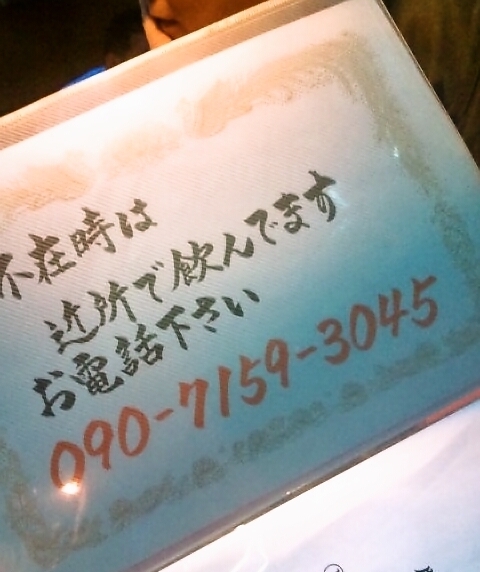 不在時は
近所で飲んでます
お電話下さい
090-7159-3045